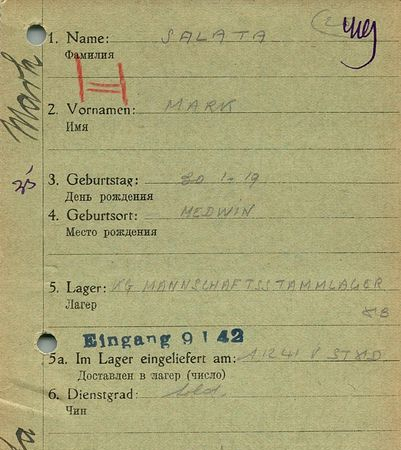 1. Name: SALATA
Фамилия
2. Vornamen: MARK
Имя
3. Geburtstag: 30 1-19
День рождения
4. Geburtsort: MEDWIN
Место рождения
5. Lager: KG MANNSCHAFTSSTAMMLAGER
Лагер
Eingang 9 1 42
5a. Im Lager eingeliefert am:
Доставлен в лагер (число)
6. Dienstgrad: Sold.
Чин